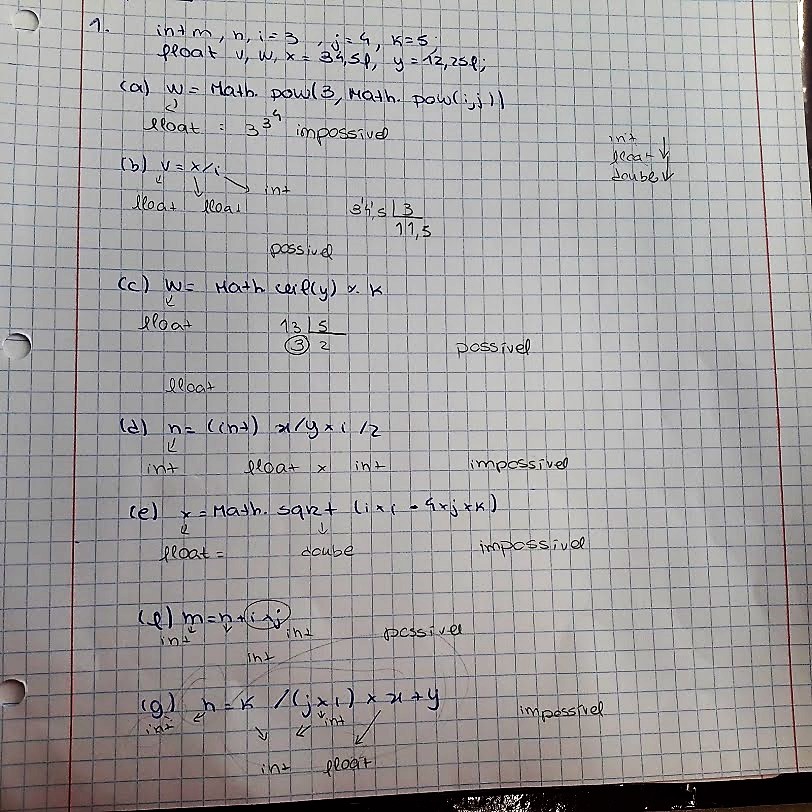 1. int m, n, i=3, j=4, k=5;
float v, w, x = 34,5f, y = 12,25f;
(a) w = Math. pow(3, Math. pow(i,j))
float : 3 3 4 impossivel
int
float
double
(b) v = x/i
float float int
34,5 3
11,5
possivel
(c) w = Math ceil(y) % k
float 13 5
3 2 possivel
float
(d) n = ((int) x/y x i /2
int float x int impossivel
(e) x = Math. sqrt (i x i - 4 x j x k)
float = doube impossivel
(f) m = n + i x j
int int possivel
int
(g) n = k /(j x i) x x + y
int int impossivel
int float